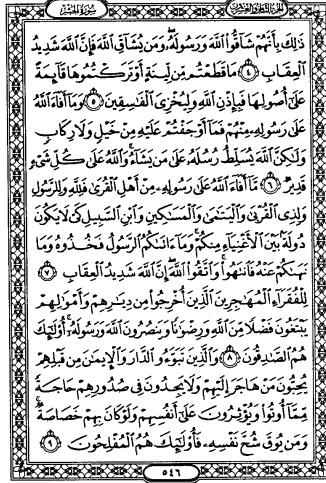 الجزء الثامن والعشرون سورة الحشر
ذَٰلِكَ بِأَنَّهُمْ شَاقُّوا۟ ٱللَّهَ وَرَسُولَهُۥ ۖ وَمَن يُشَآقِّ ٱللَّهَ فَإِنَّ ٱللَّهَ شَدِيدُ
ٱلْعِقَابِ ٤ مَا قَطَعْتُم مِّن لِّينَةٍ أَوْ تَرَكْتُمُوهَا قَآئِمَةً
عَلَىٰٓ أُصُولِهَا فَبِإِذْنِ ٱللَّهِ وَلِيُخْزِىَ ٱلْفَٰسِقِينَ ٥ وَمَآ أَفَآءَ ٱللَّهُ
عَلَىٰ رَسُولِهِۦ مِنْهُمْ فَمَآ أَوْجَفْتُمْ عَلَيْهِ مِنْ خَيْلٍ وَلَا رِكَابٍ
وَلَٰكِنَّ ٱللَّهَ يُسَلِّطُ رُسُلَهُۥ عَلَىٰ مَن يَشَآءُ ۚ وَٱللَّهُ عَلَىٰ كُلِّ شَىْءٍ
قَدِيرٌ ٦ مَّآ أَفَآءَ ٱللَّهُ عَلَىٰ رَسُولِهِۦ مِنْ أَهْلِ ٱلْقُرَىٰ فَلِلَّهِ وَلِلرَّسُولِ
وَلِذِى ٱلْقُرْبَىٰ وَٱلْيَتَٰمَىٰ وَٱلْمَسَٰكِينِ وَٱبْنِ ٱلسَّبِيلِ كَىْ لَا يَكُونَ
دُولَةًۢ بَيْنَ ٱلْأَغْنِيَآءِ مِنكُمْ ۚ وَمَآ ءَاتَىٰكُمُ ٱلرَّسُولُ فَخُذُوهُ وَمَا
نَهَىٰكُمْ عَنْهُ فَٱنتَهُوا۟ ۚ وَٱتَّقُوا۟ ٱللَّهَ ۖ إِنَّ ٱللَّهَ شَدِيدُ ٱلْعِقَابِ ٧
لِلْفُقَرَآءِ ٱلْمُهَٰجِرِينَ ٱلَّذِينَ أُخْرِجُوا۟ مِن دِيَٰرِهِمْ وَأَمْوَٰلِهِمْ
يَبْتَغُونَ فَضْلًا مِّنَ ٱللَّهِ وَرِضْوَٰنًا وَيَنصُرُونَ ٱللَّهَ وَرَسُولَهُۥٓ ۚ أُو۟لَٰٓئِكَ
هُمُ ٱلصَّٰدِقُونَ ٨ وَٱلَّذِينَ تَبَوَّءُو ٱلدَّارَ وَٱلْإِيمَٰنَ مِن قَبْلِهِمْ
يُحِبُّونَ مَنْ هَاجَرَ إِلَيْهِمْ وَلَا يَجِدُونَ فِى صُدُورِهِمْ حَاجَةً
مِّمَّآ أُوتُوا۟ وَيُؤْثِرُونَ عَلَىٰٓ أَنفُسِهِمْ وَلَوْ كَانَ بِهِمْ خَصَاصَةٌ ۚ
وَمَن يُوقَ شُحَّ نَفْسِهِۦ فَأُو۟لَٰٓئِكَ هُمُ ٱلْمُفْلِحُونَ ٩
٥٤٦